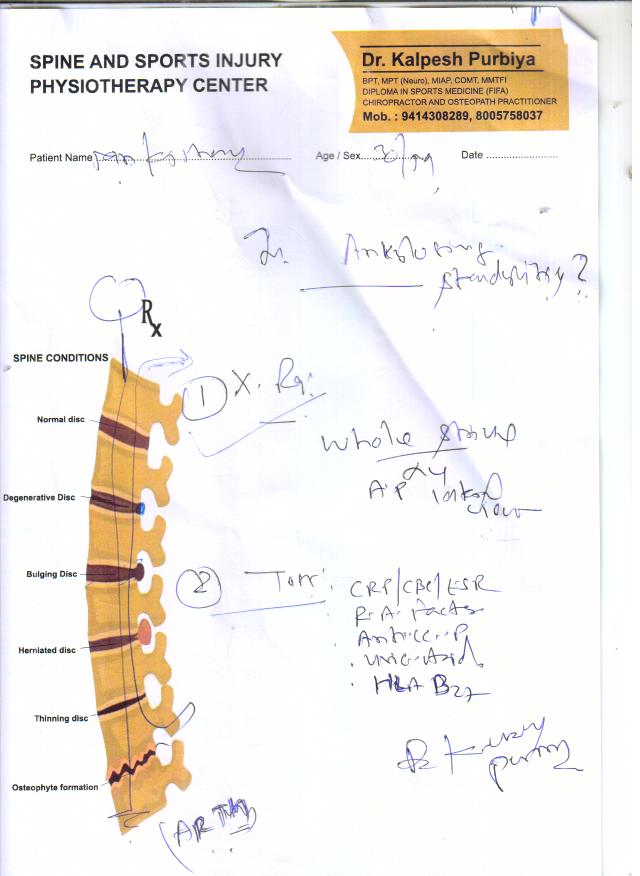 SPINE AND SPORTS INJURY
PHYSIOTHERAPY CENTER
Dr. Kalpesh Purbiya
BPT, MPT (Neuro), MIAP, COMT, MMTFI
DIPLOMA IN SPORTS MEDICINE (FIFA)
CHIROPRACTOR AND OSTEOPATH PRACTITIONER
Mob. : 9414308289, 8005758037
Patient Name
Age / Sex 30/
Date
?
Rx
SPINE CONDITIONS
1 X. Ray
Normal disc
whole
AP
view
Degenerative Disc
Bulging Disc
2
CRP/CBC/ESR
R.A. Factor
Anti c.c.P
Uric Acid
HLA B27
Herniated disc
Thinning disc
Osteophyte formation